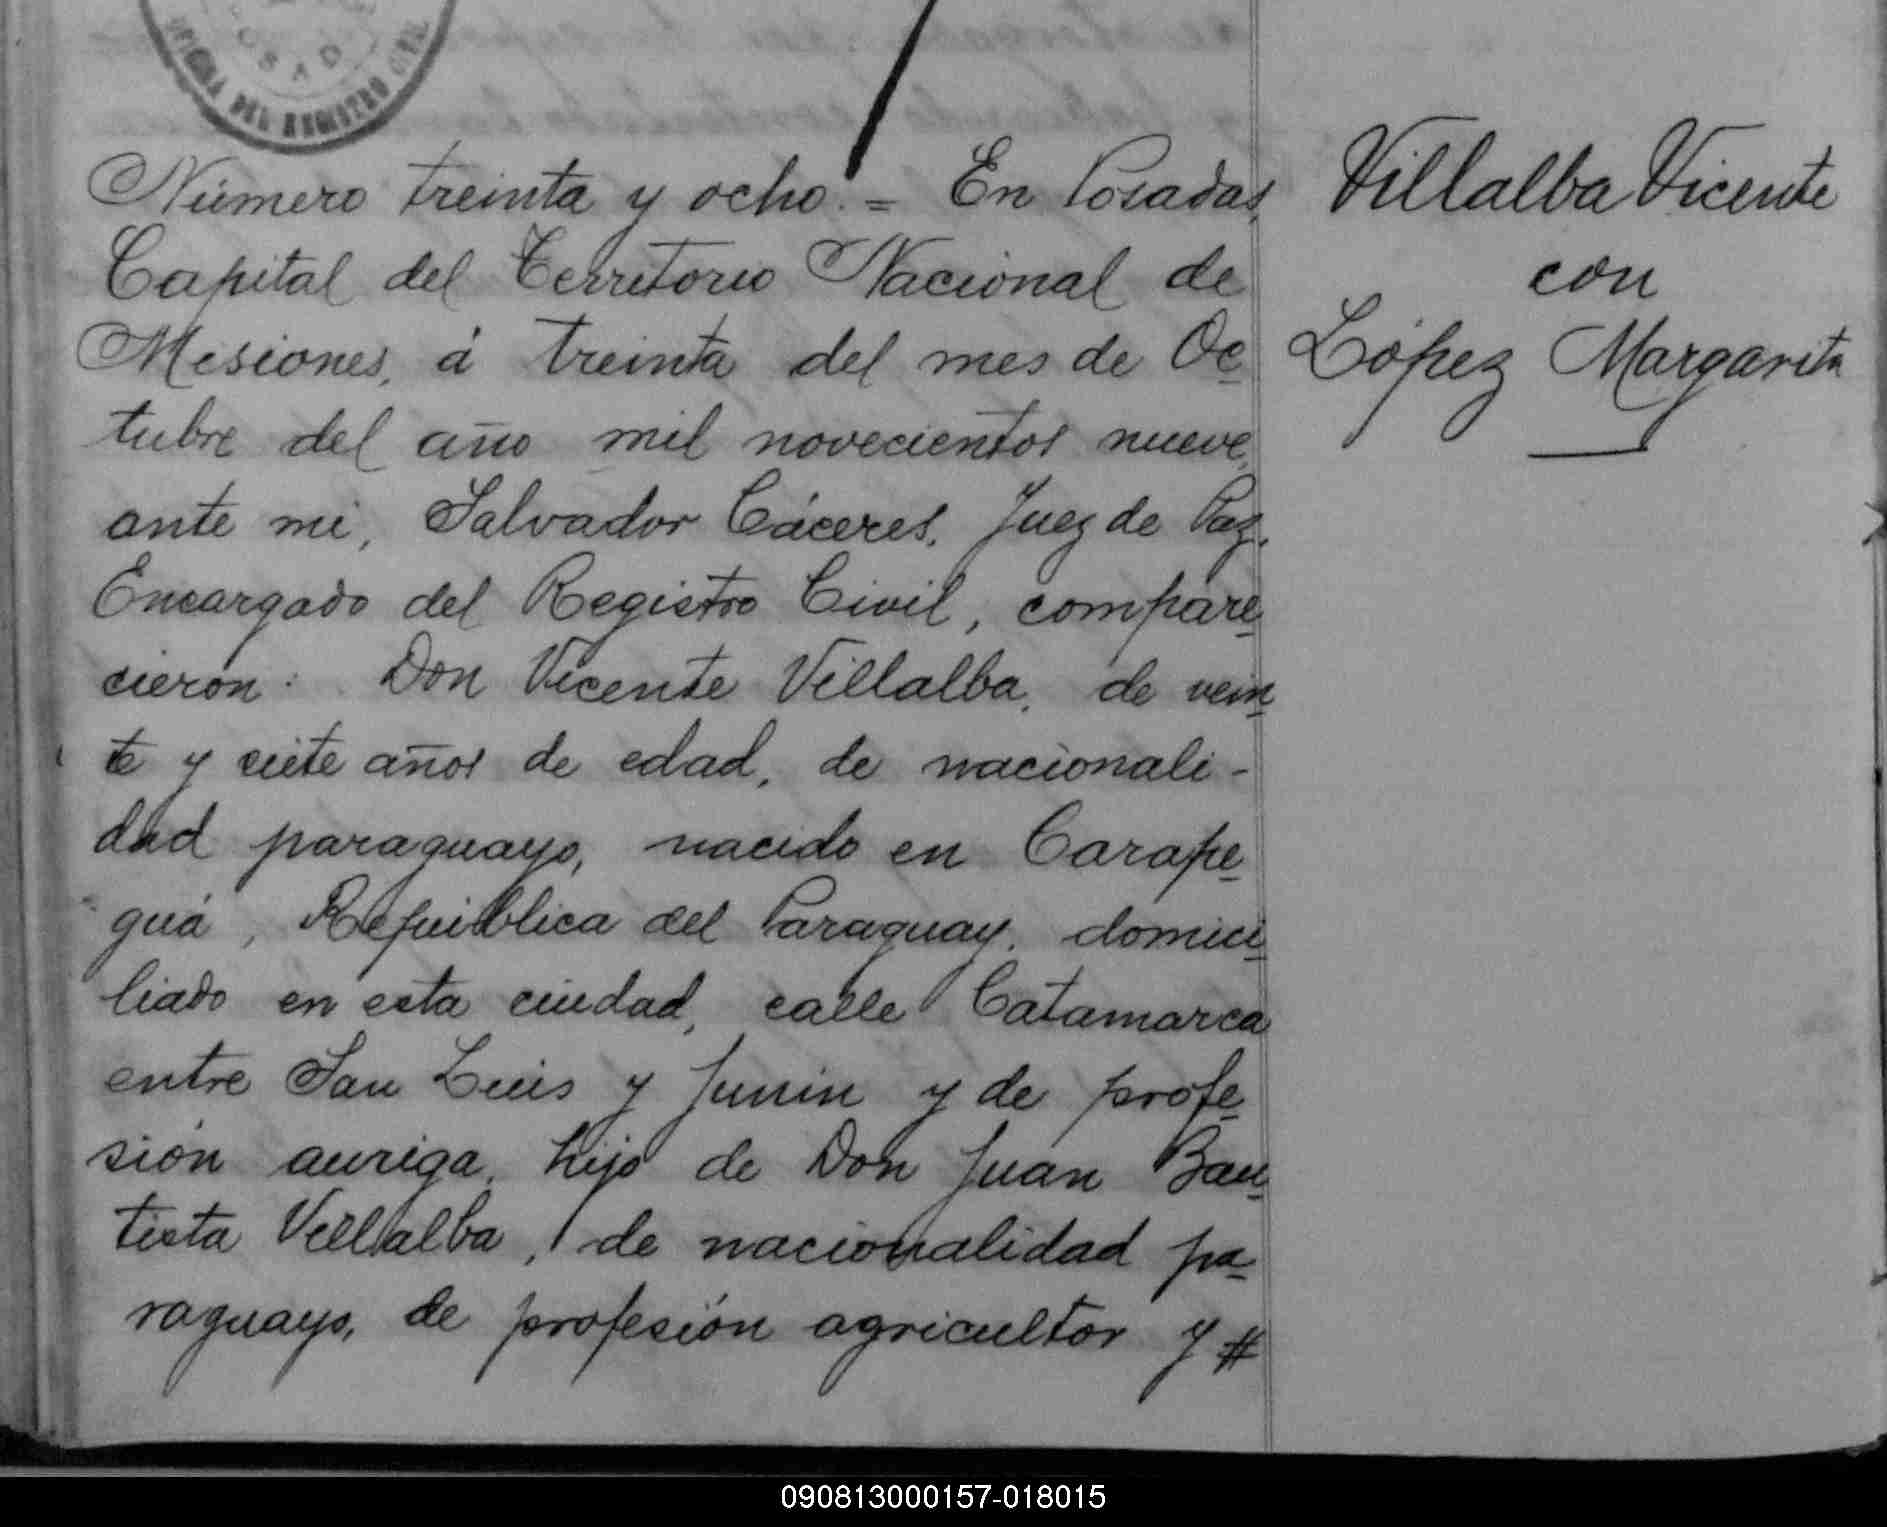 OFICINA DEL REGISTRO CIVIL
Número treinta y ocho. = En Posadas,
Capital del Territorio Nacional de
Misiones, á treinta del mes de Oc-
tubre del año mil novecientos nueve,
ante mi, Salvador Cáceres, Juez de Paz,
Encargado del Registro Civil, compare-
cieron: Don Vicente Villalba, de vein-
te y siete años de edad, de nacionali-
dad paraguayo, nacido en Carape-
guá, República del Paraguay, domici-
liado en esta ciudad, calle Catamarca
entre San Luis y Junin y de profe-
sión auriga, hijo de Don Juan Bau-
tista Villalba, de nacionalidad pa-
raguayo, de profesión agricultor y #
Villalba Vicente
con
López Margarita
090813000157-018015